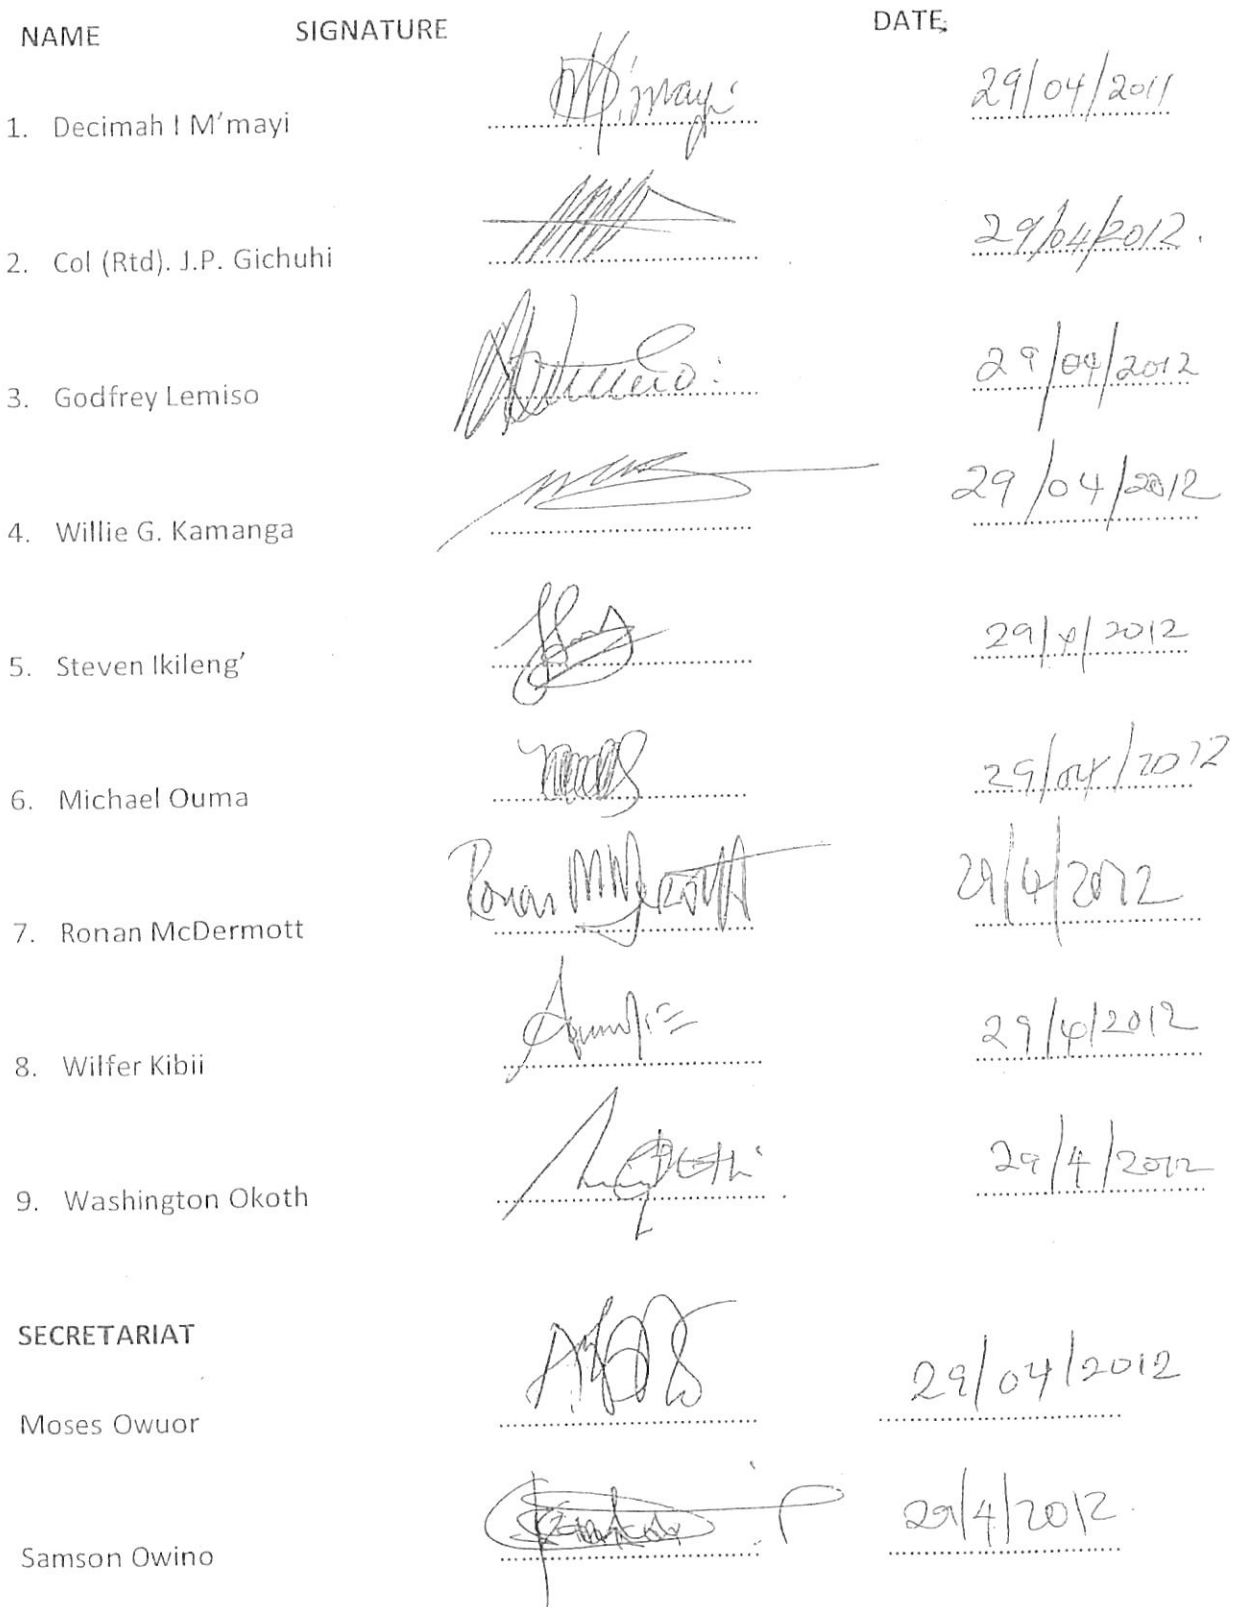 NAME SIGNATURE DATE
1. Decimah I M'mayi M'mayi 29/04/2011
2. Col (Rtd). J.P. Gichuhi 29/04/2012.
3. Godfrey Lemiso 29/04/2012
4. Willie G. Kamanga 29/04/2012
5. Steven Ikileng' 29/4/2012
6. Michael Ouma 29/04/2012
7. Ronan McDermott Ronan McDermott 29/4/2012
8. Wilfer Kibii 29/4/2012
9. Washington Okoth 29/4/2012
SECRETARIAT
Moses Owuor 29/04/2012
Samson Owino 29/4/2012.